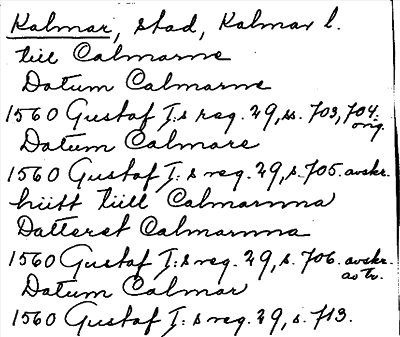 Kalmar, stad, Kalmar l.
till Calmarne
Datum Calmarne
1560 Gustaf I:s reg. 29, ss. 703, 704. orig.
Datum Calmare
1560 Gustaf I:s reg. 29, s. 705. avskr.
hiitt tiill Calmarnna
Datteret Calmarnna
1560 Gustaf I:s reg. 29, s. 706. avskr. av tr.
Datum Calmar
1560 Gustaf I:s reg. 29, s. 713.